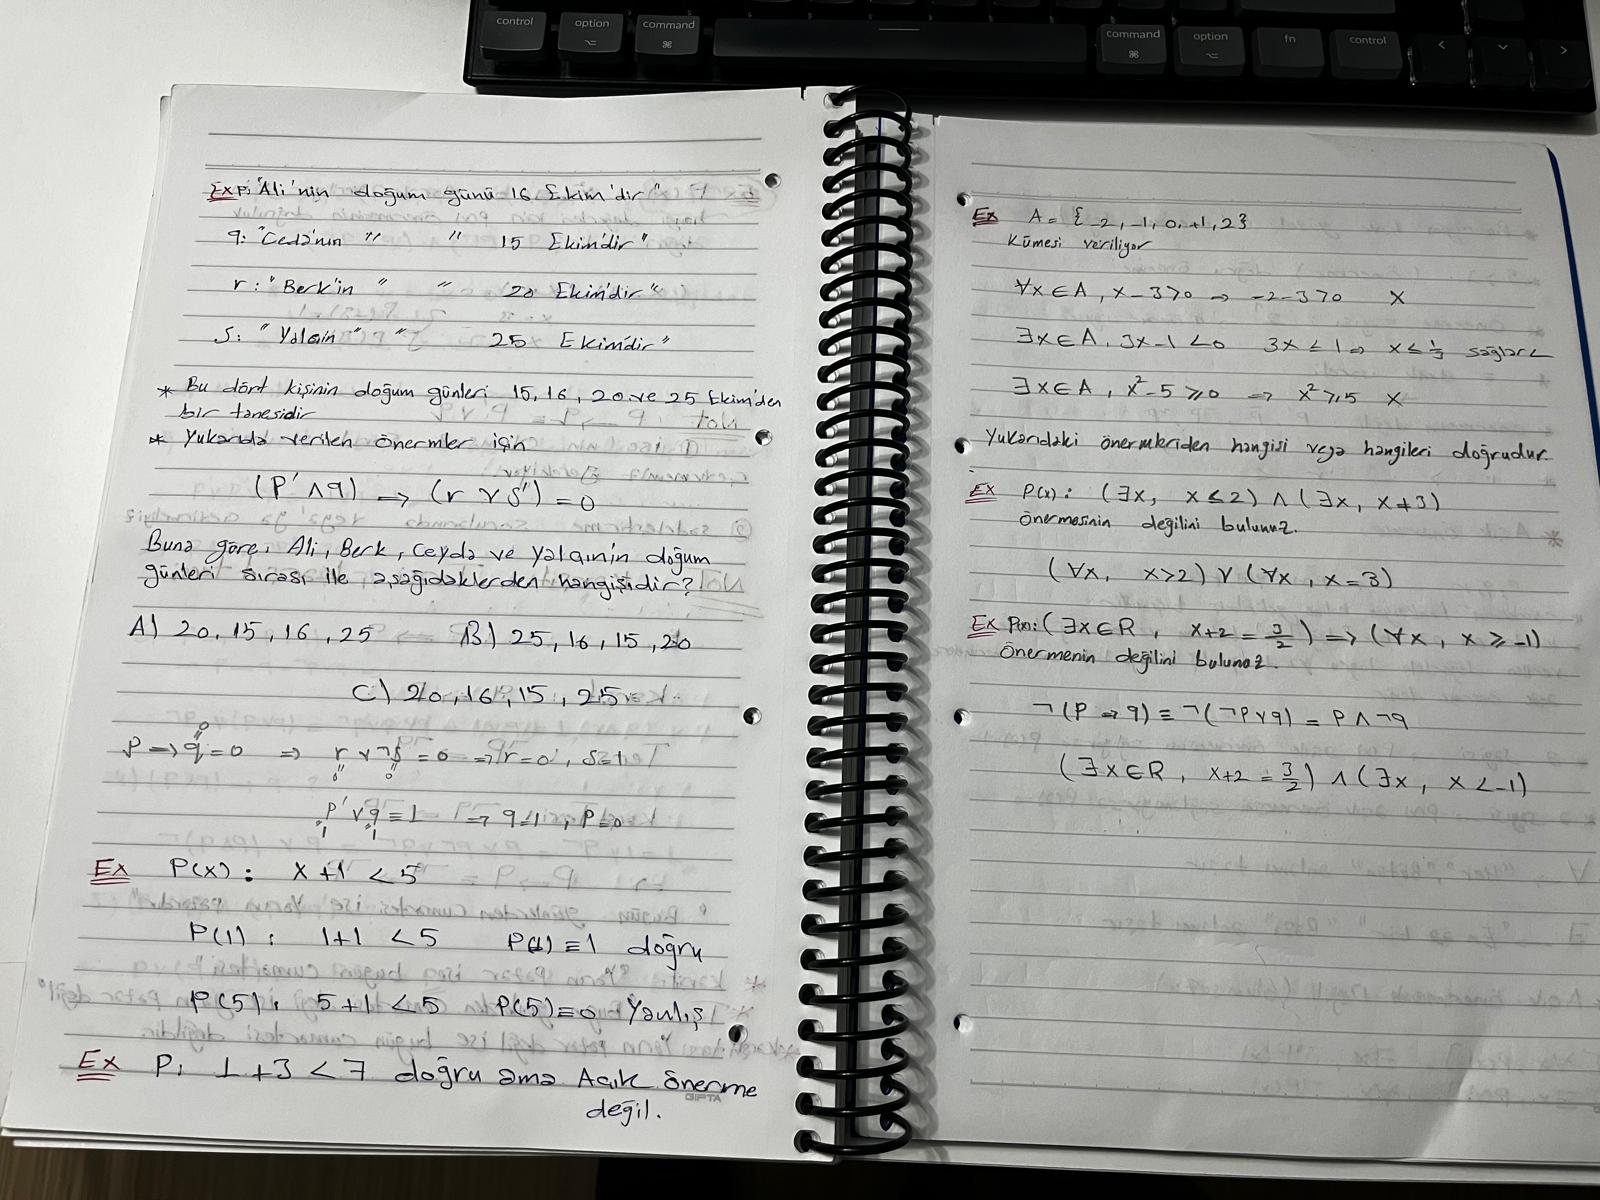 control option command command option fn control
Ex p: "Ali'nin doğum günü 16 Ekim'dir"
q: "Ceda'nın " " 15 Ekim'dir"
r: "Berk'in " " 20 Ekim'dir"
s: "Yalçin " " 25 Ekim'dir"
* Bu dört kişinin doğum günleri 15, 16, 20 ve 25 Ekim'den
bir tanesidir
* Yukarıda verilen önermler için
(P' ∧ q) ⇒ (r ∨ s') = 0
Buna göre, Ali, Berk, Ceyda ve Yalçının doğum
günleri sırası ile aşağıdaklerden hangisidir?
A) 20, 15, 16, 25 B) 25, 16, 15, 20
C) 20, 16, 15, 25
P ⇒ q = 0 ⇒ r ∨ ¬s = 0 ⇒ r = 0, s = 1
p' ∨ q ≡ 1 ⇒ q = 1, p = 0
Ex P(x): x + 1 < 5
P(1): 1+1 < 5 P(1) ≡ 1 doğru
P(5): 5+1 < 5 P(5) ≡ 0 Yanlış
Ex P: 1 + 3 < 7 doğru ama Açık önerme
değil.
GIPTA
Ex A = {-2, -1, 0, +1, 2}
Kümesi veriliyor
∀x ∈ A, x - 3 > 0 ⇒ -2-3 > 0 X
∃x ∈ A, 3x - 1 < 0 3x < 1 ⇒ x ≤ 1/3 sağlar
∃x ∈ A, x² - 5 ≥ 0 ⇒ x² ≥ 5 X
Yukarıdaki önermleriden hangisi veya hangileri doğrudur.
Ex P(x): (∃x, x ≤ 2) ∧ (∃x, x ≠ 3)
önermesinin değilini bulunuz.
(∀x, x > 2) ∨ (∀x, x = 3)
Ex P(x): (∃x ∈ R, x+2 = 3/2) ⇒ (∀x, x ≥ -1)
önermenin değilini bulunuz.
¬(P ⇒ q) ≡ ¬(¬P ∨ q) = P ∧ ¬q
(∃x ∈ R, x+2 = 3/2) ∧ (∃x, x < -1)